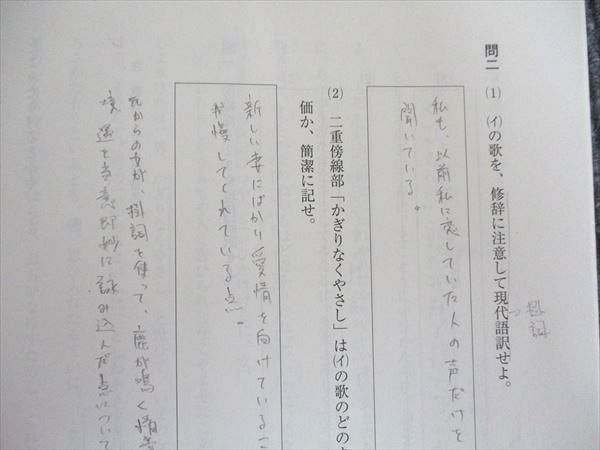 問二 (1) (イ)の歌を、修辞に注意して現代語訳せよ。
掛詞
私も、以前私に恋していた人の声だけを
聞いている。
(2) 二重傍線部「かぎりなくやさし」は(イ)の歌のどの
価か、簡潔に記せ。
新しい妻にばかり愛情を向けているこ
我慢してくれている点。
元からの女が、掛詞を使って、鹿が鳴く情
境遇を当意即妙に詠み込んだ点について